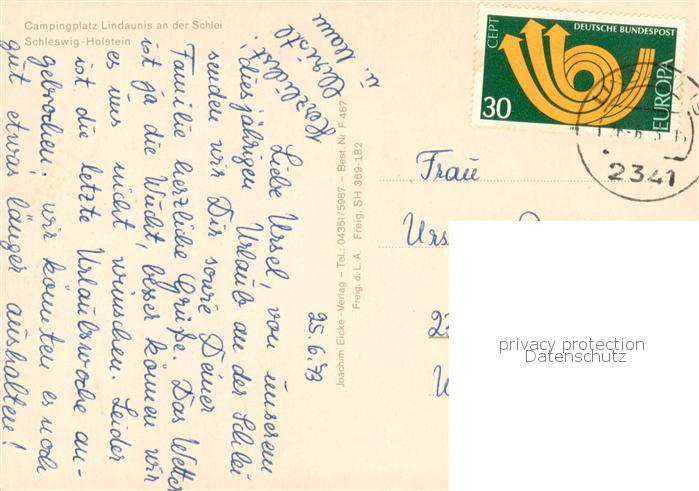 Campingplatz Lindaunis an der Schlei
Schleswig-Holstein
CEPT
DEUTSCHE BUNDESPOST
30
EUROPA
2341
Joachim Eicke-Verlag – Tel.: 04351/5987 – Best. Nr F 467
Freig. d. L. A. Freig. SH 369-182
25.6.73
Liebe Ursel, von unserem
diesjährigen Urlaub an der Schlei
senden wir Dir sowie Deiner
Familie herzliche Grüße. Das Wetter
ist ja die Wucht, besser können wir
es uns nicht wünschen. Leider
ist die letzte Urlaubswoche an-
gebrochen; wir könnten es noch
gut etwas länger aushalten!
Herzlichst
u.
Frau
privacy protection
Datenschutz